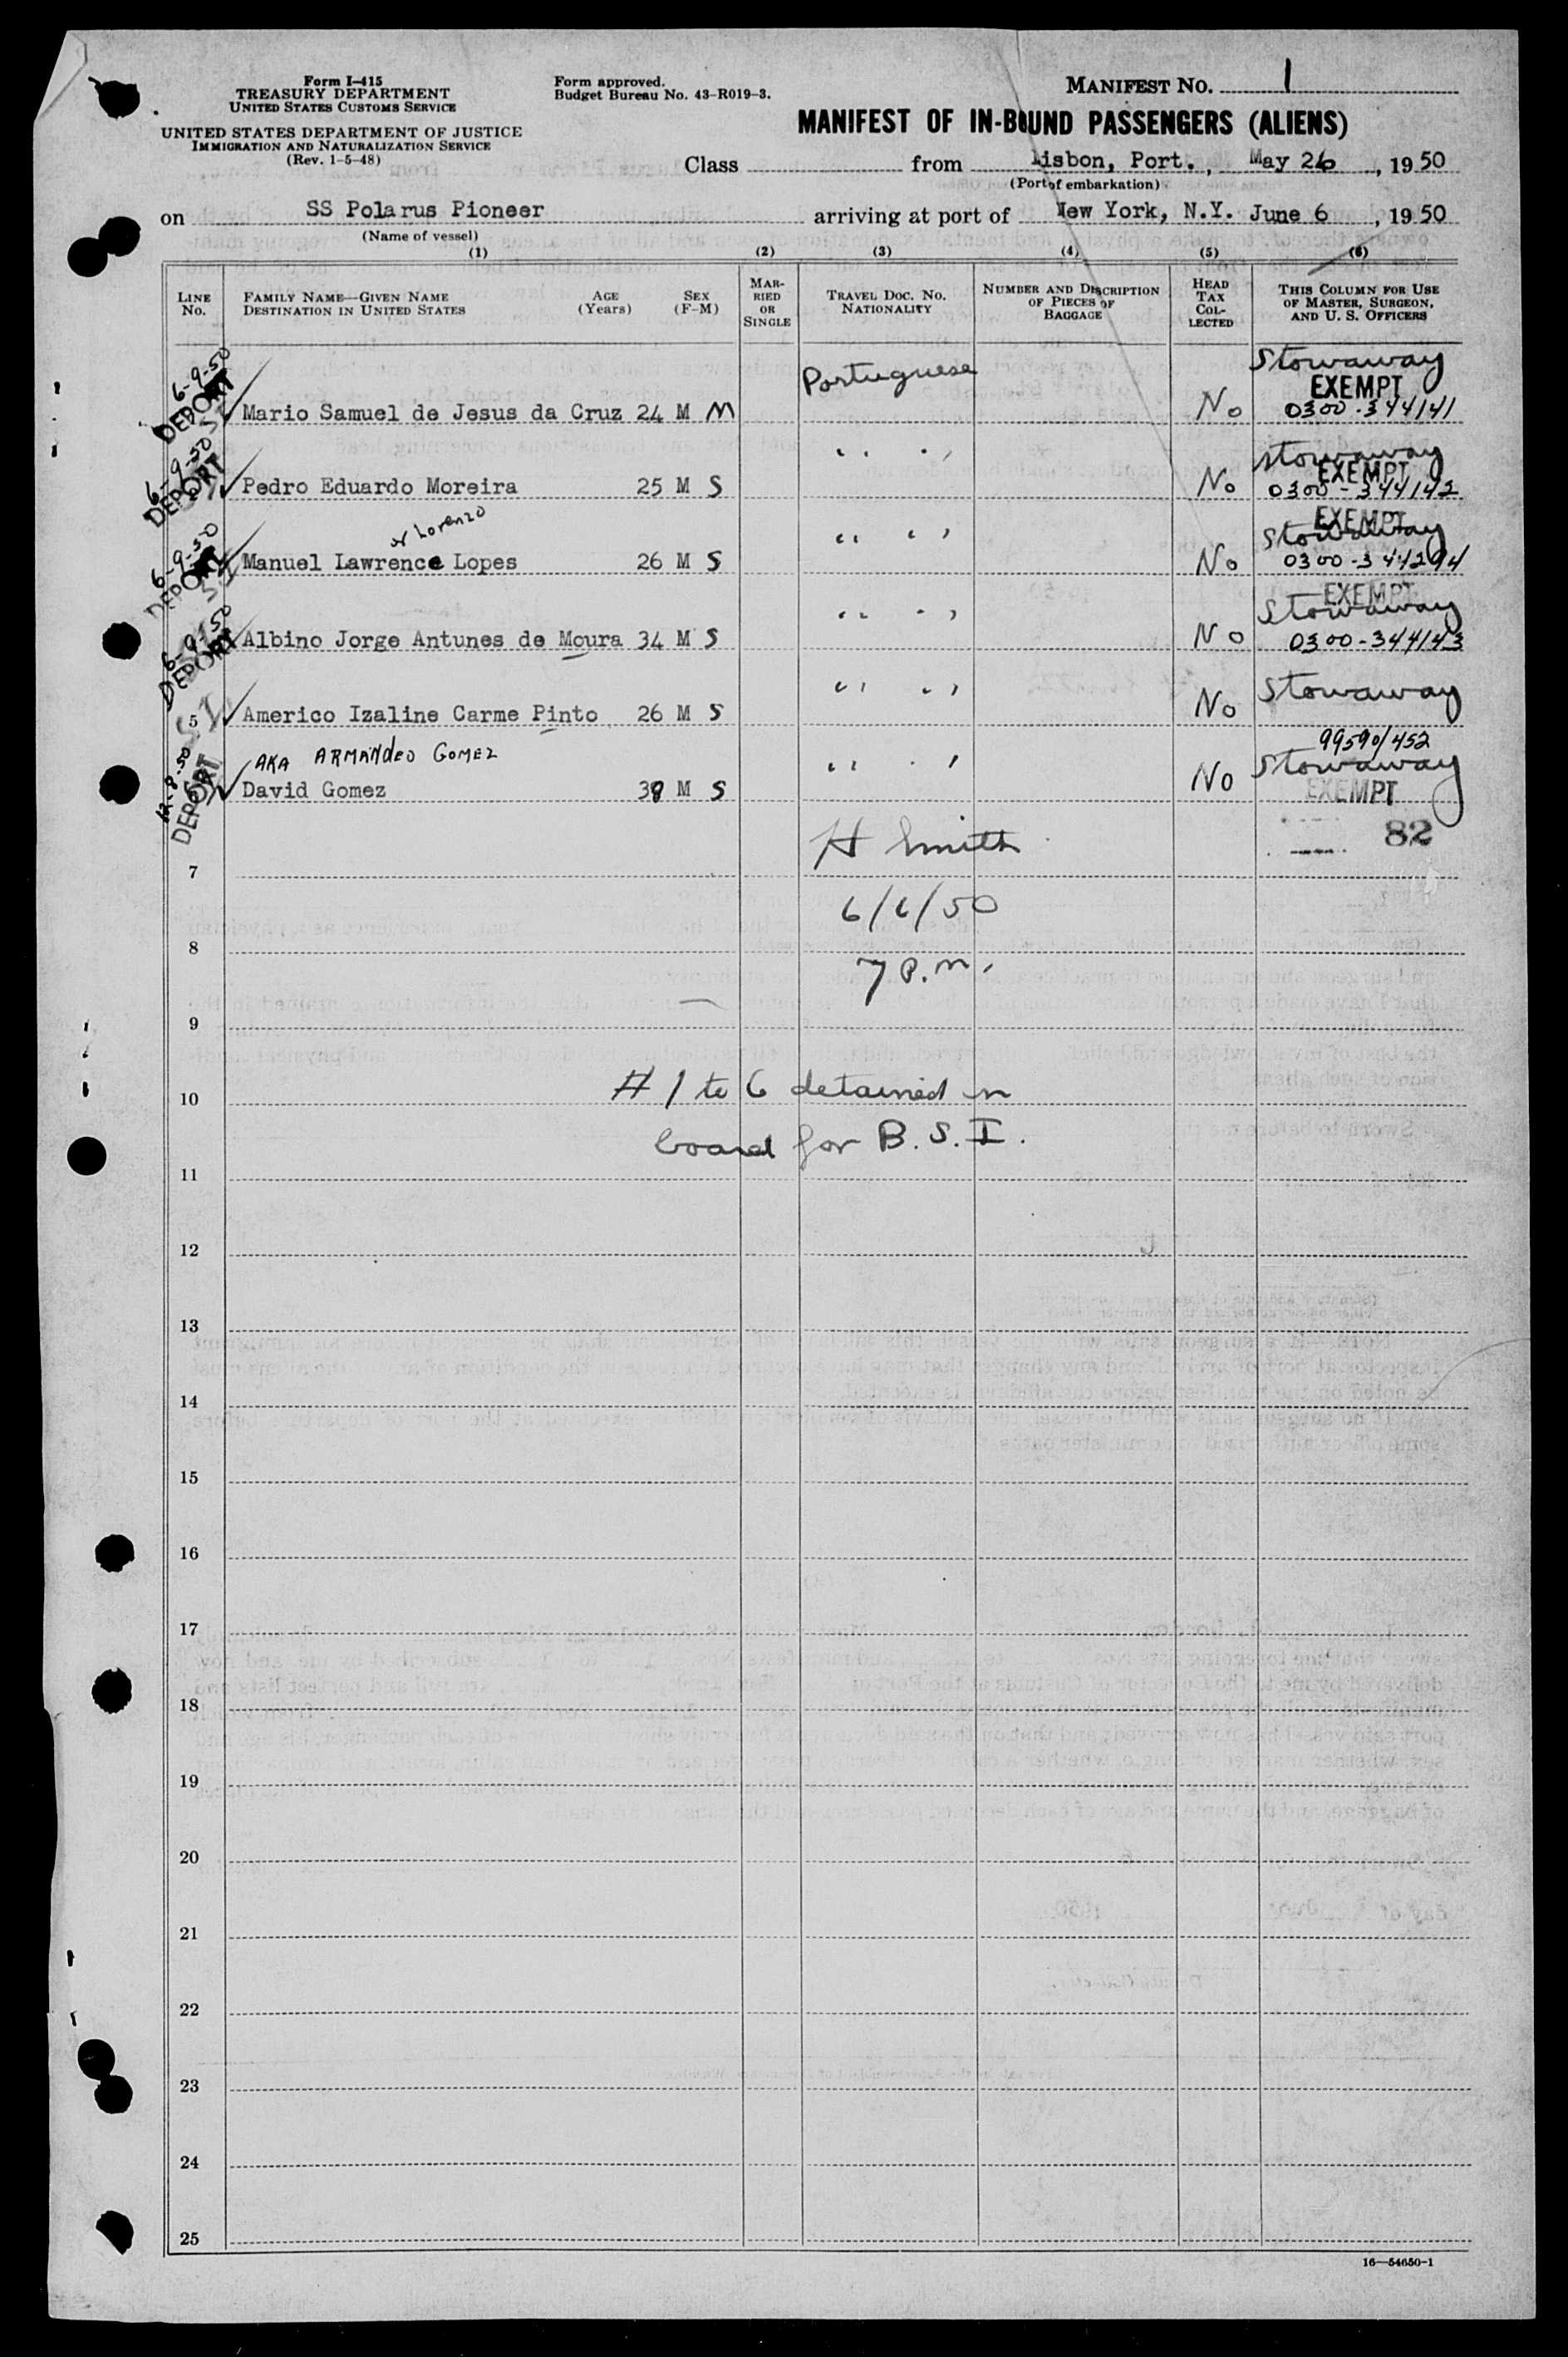 Form I-415
TREASURY DEPARTMENT
UNITED STATES CUSTOMS SERVICE
UNITED STATES DEPARTMENT OF JUSTICE
IMMIGRATION AND NATURALIZATION SERVICE
(Rev. 1-5-48)
Form approved.
Budget Bureau No. 43-R019-3.
MANIFEST NO. 1
MANIFEST OF IN-BOUND PASSENGERS (ALIENS)
Class from Lisbon, Port., May 26, 1950
(Port of embarkation)
on SS Polarus Pioneer arriving at port of New York, N.Y. June 6, 1950
(Name of vessel)
(1) (2) (3) (4) (5) (6)
LINE No. FAMILY NAME—GIVEN NAME DESTINATION IN UNITED STATES AGE (Years) SEX (F-M) MARRIED OR SINGLE TRAVEL DOC. NO. NATIONALITY NUMBER AND DESCRIPTION OF PIECES OF BAGGAGE HEAD TAX COLLECTED THIS COLUMN FOR USE OF MASTER, SURGEON, AND U. S. OFFICERS
6-9-50 DEPORT Mario Samuel de Jesus da Cruz 24 M M Portuguese No Stowaway EXEMPT 0300-344141
6-9-50 DEPORT Pedro Eduardo Moreira 25 M S " " No Stowaway EXEMPT 0300-344142
or Lorenzo
6-9-50 DEPORT Manuel Lawrence Lopes 26 M S " " No EXEMPT Stowaway 0300-344294
6-9-50 DEPORT Albino Jorge Antunes de Moura 34 M S " " No EXEMPT Stowaway 0300-344143
5 SI Americo Izaline Carme Pinto 26 M S " " No Stowaway
AKA ARMANDEO GOMEZ 99590/452
12-8-50 DEPORT David Gomez 38 M S " " No Stowaway EXEMPT
82
7 H Smith
8 6/6/50
7 P.m.
9
10 # 1 to 6 detained on
board for B.S.I.
11
12
13
14
15
16
17
18
19
20
21
22
23
24
25
16—54650-1